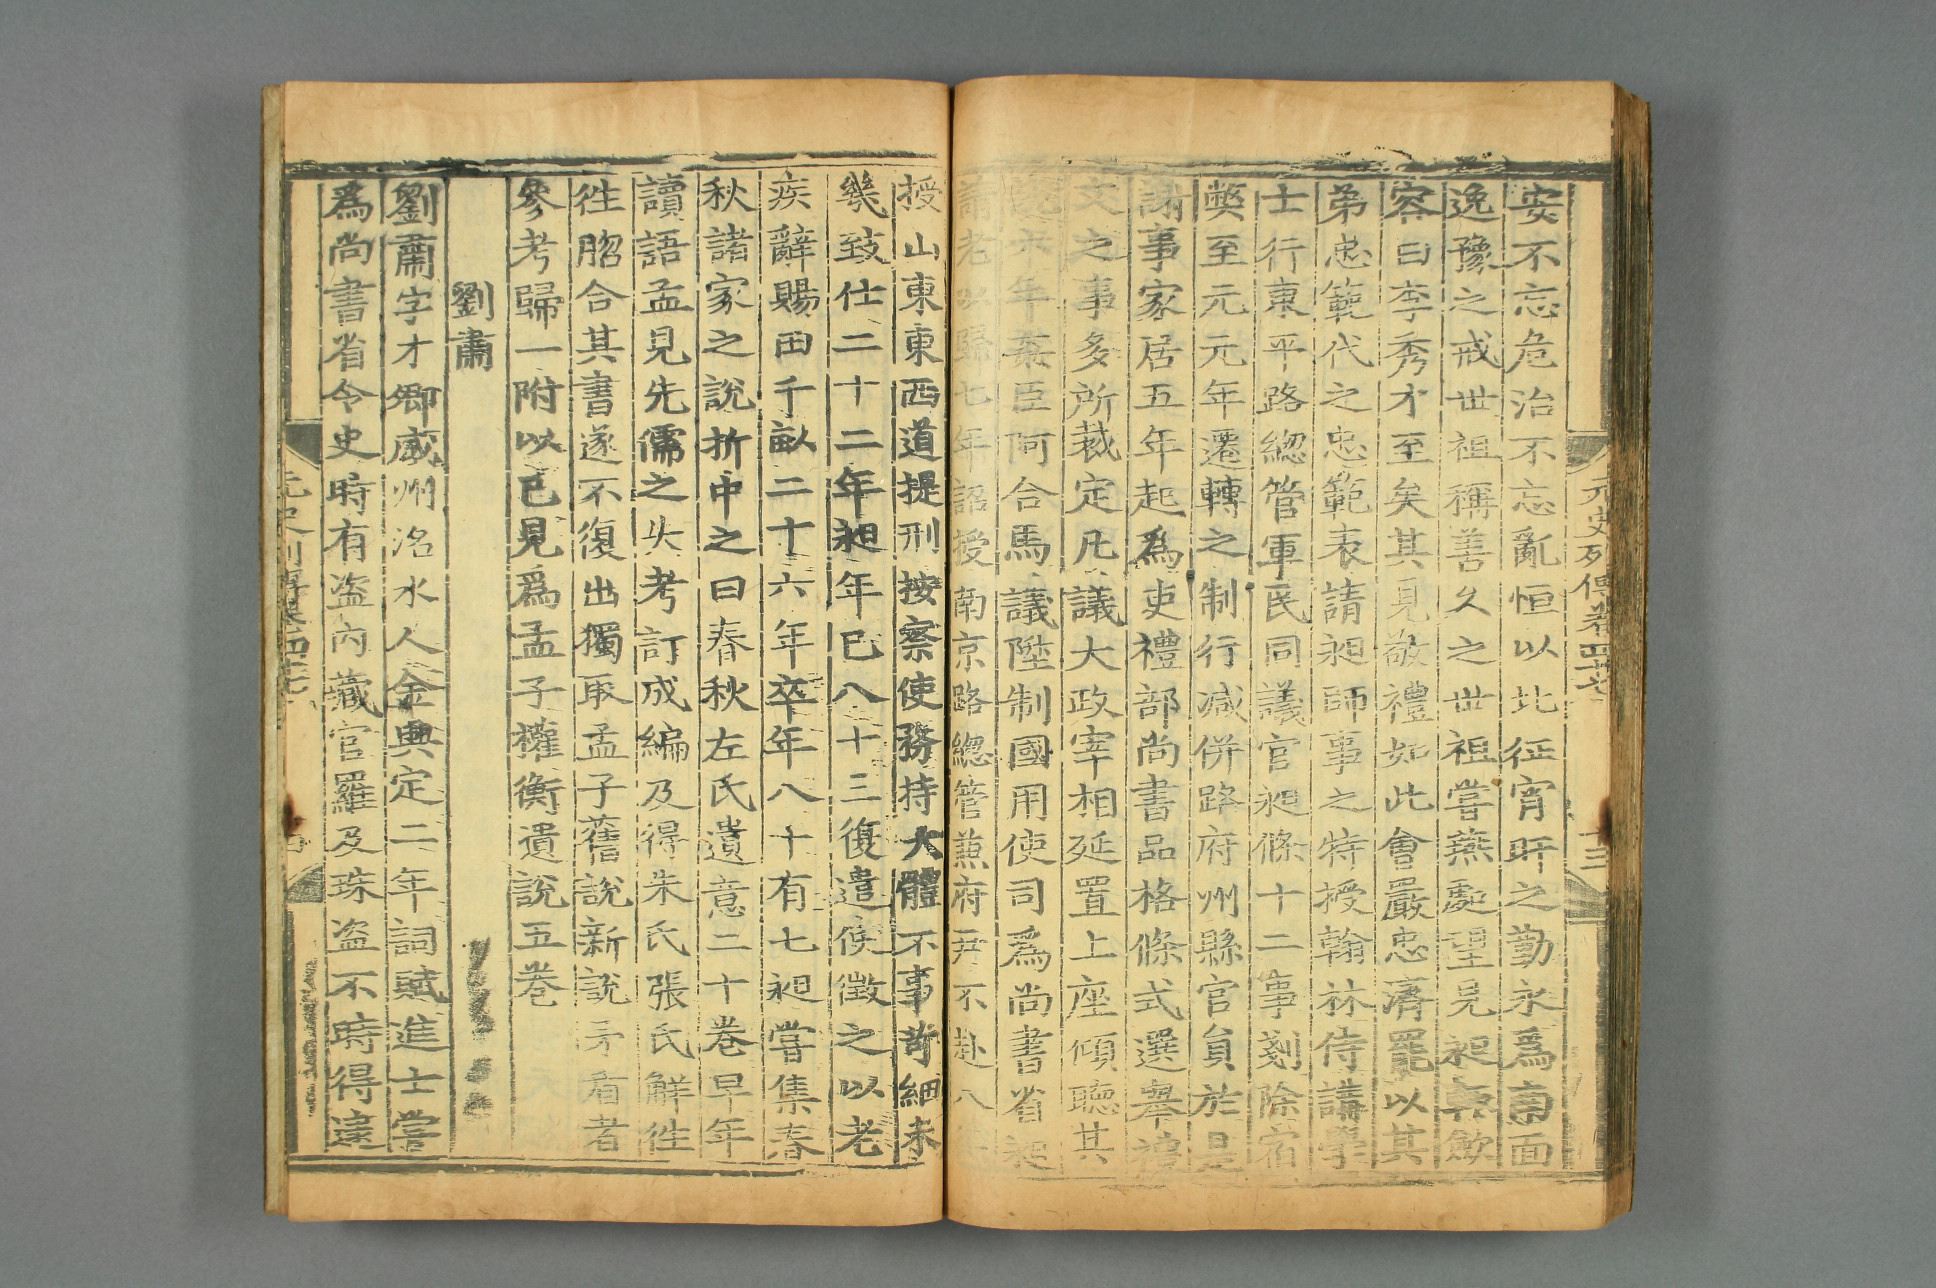 元史列傳卷四十七
十三
安不忘危治不忘亂恒以北征宵旰之勤永爲南面
逸豫之戒世祖稱善久之世祖嘗燕處望見昶輒斂
容曰李秀才至矣其見敬禮如此會嚴忠濟罷以其
弟忠範代之忠範表請昶師事之特授翰林侍講學
士行東平路總管軍民同議官昶條十二事剗除宿
弊至元元年遷轉之制行減併路府州縣官員於是
謝事家居五年起爲吏禮部尚書品格條式選舉禮
文之事多所裁定凡議大政宰相延置上座傾聽其
說六年姦臣阿合馬議陞制國用使司爲尚書省昶
請老以歸七年詔授南京路總管兼府尹不赴八年
授山東東西道提刑按察使務持大體不事苛細未
幾致仕二十二年昶年已八十三復遣使徵之以老
疾辭賜田千畝二十六年卒年八十有七昶嘗集春
秋諸家之說折中之曰春秋左氏遺意二十卷早年
讀語孟見先儒之失考訂成編及得朱氏張氏解往
徃脗合其書遂不復出獨取孟子舊說新說矛盾者
參考歸一附以己見爲孟子權衡遺說五卷
劉肅
劉肅字才卿威州洺水人金興定二年詞賦進士嘗
爲尚書省令史時有盜內藏官羅及珠盜不時得逮
元史列傳卷四十七